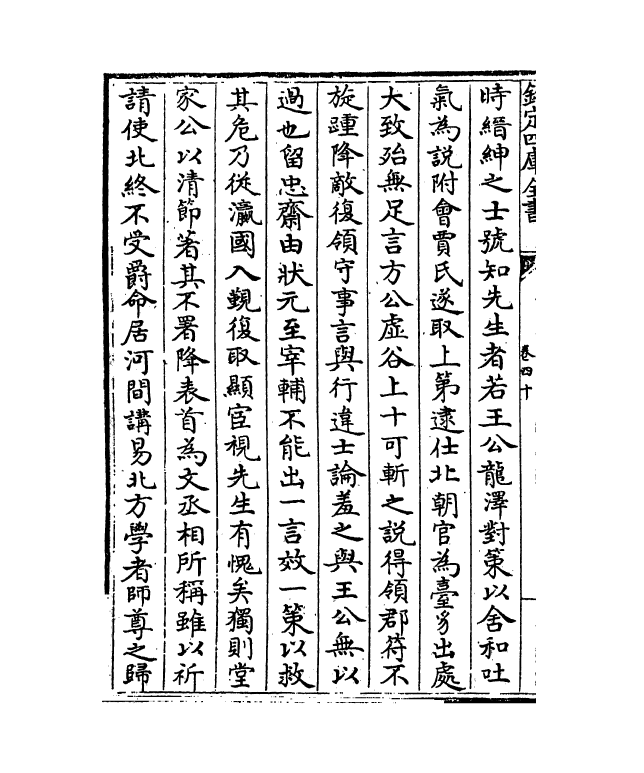 欽定四庫全書
卷四十
時縉紳之士號知先生者若王公龍澤對策以舍和吐
氣為說附會賈氏遂取上第逮仕北朝官為臺出處
大致殆無足言方公虛谷上十可斬之說得領郡符不
旋踵降敵復領守事言與行違士論羞之與王公無以
過也留忠齋由狀元至宰輔不能出一言效一策以救
其危乃從瀛國入覲復取顯宦視先生有愧矣獨則堂
家公以清節著其不署降表首為文丞相所稱雖以祈
請使北終不受爵命居河間講易北方學者師尊之歸